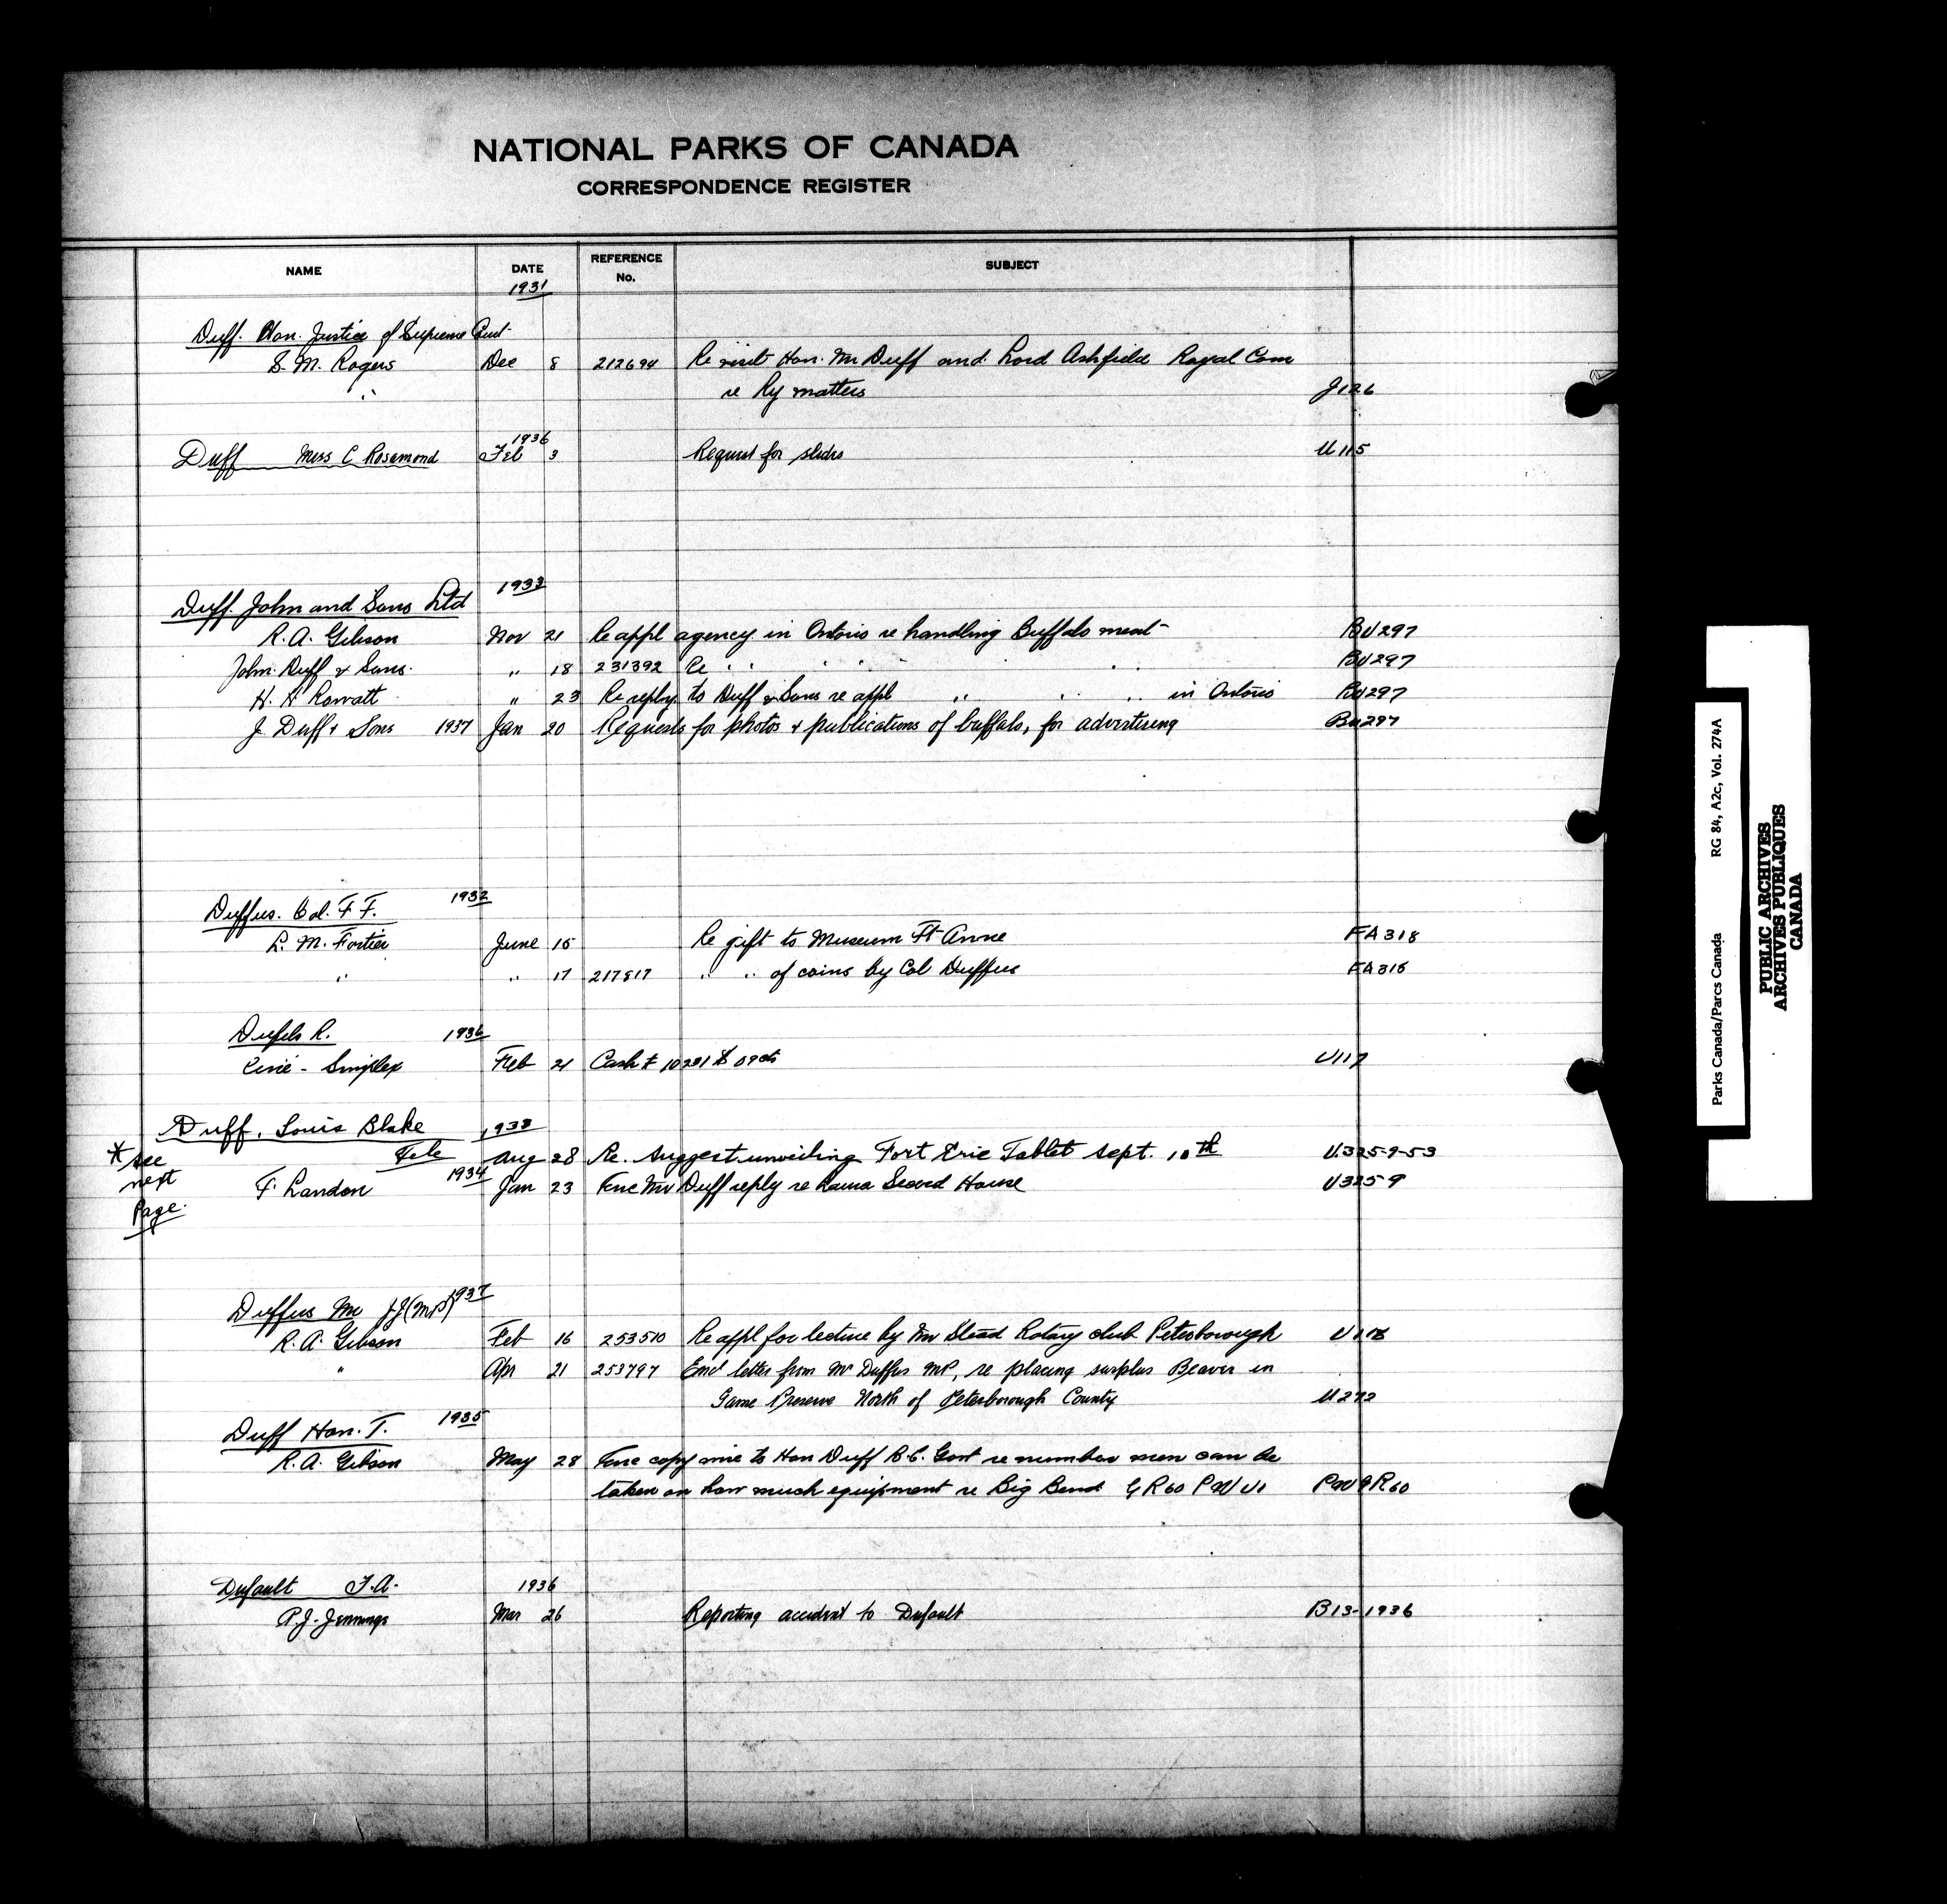 NATIONAL PARKS OF CANADA
CORRESPONDENCE REGISTER
NAME DATE REFERENCE No. SUBJECT
1931
Duff. Hon. Justice of Supreme Court
S. M. Rogers Dec 8 212694 Re visit Hon. Mr Duff and Lord Ashfield Royal Com
" re Ry matters J126
1936
Duff Miss C Rosamond Feb 3 Request for slides U115
1933
Duff. John and Sons Ltd
R. A. Gibson Nov 21 Re appl agency in Ontario re handling Buffalo meat BU297
John Duff & Sons. " 18 231392 Re " " " " " BU297
H. H Rowatt " 23 Re reply to Duff & Sons re appl " " " in Ontario BU297
J Duff & Sons 1937 Jan 20 Requests for photos & publications of buffalo, for advertising Bu297
Duffus. Col. F F. 1932
L. M. Fortier June 15 Re gift to Museum Ft Anne FA318
" " 17 217817 " " of coins by Col Duffus FA318
R. 1936
Cine - Simplex Feb 21 Cash # 10231 $ 09cts U117
Duff, Louis Blake 1938
* see next Page.
File Aug 28 Re. Suggest unveiling Fort Erie Tablet Sept. 10th U.325-9-53
F. Landon 1934 Jan 23 Enc Mr Duff reply re Laura Secord House U325-9
Duffus Mr J.J (M.P) 1937
R. A. Gibson Feb 16 253510 Re appl for lecture by Mr Stead Rotary club Peterborough U118
" Apr 21 253797 Encl letter from Mr Duffus MP, re placing surplus Beaver in
Game Preserve North of Peterborough County U272
Duff Hon. T. 1935
R. A. Gibson May 28 Enc copy wire to Hon Duff B.C. Govt re number men can be
taken on how much equipment re Big Bend GR60 PWU1 PWGR60
Dufault F.A. 1936
P.J. Jennings Mar 26 Reporting accident to Dufault B13-1936
Parks Canada/Parcs Canada RG 84, A2c, Vol. 274A
PUBLIC ARCHIVES
ARCHIVES PUBLIQUES
CANADA